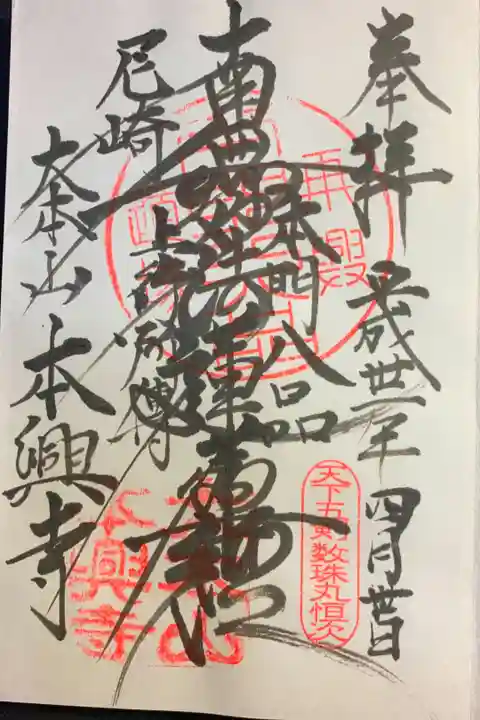 奉拝 平成丗一年四月
本門八品
南無妙法蓮華経
上行所傳
尼崎
大本山 本興寺
天下五剣数珠丸恒次
大本山
本興寺